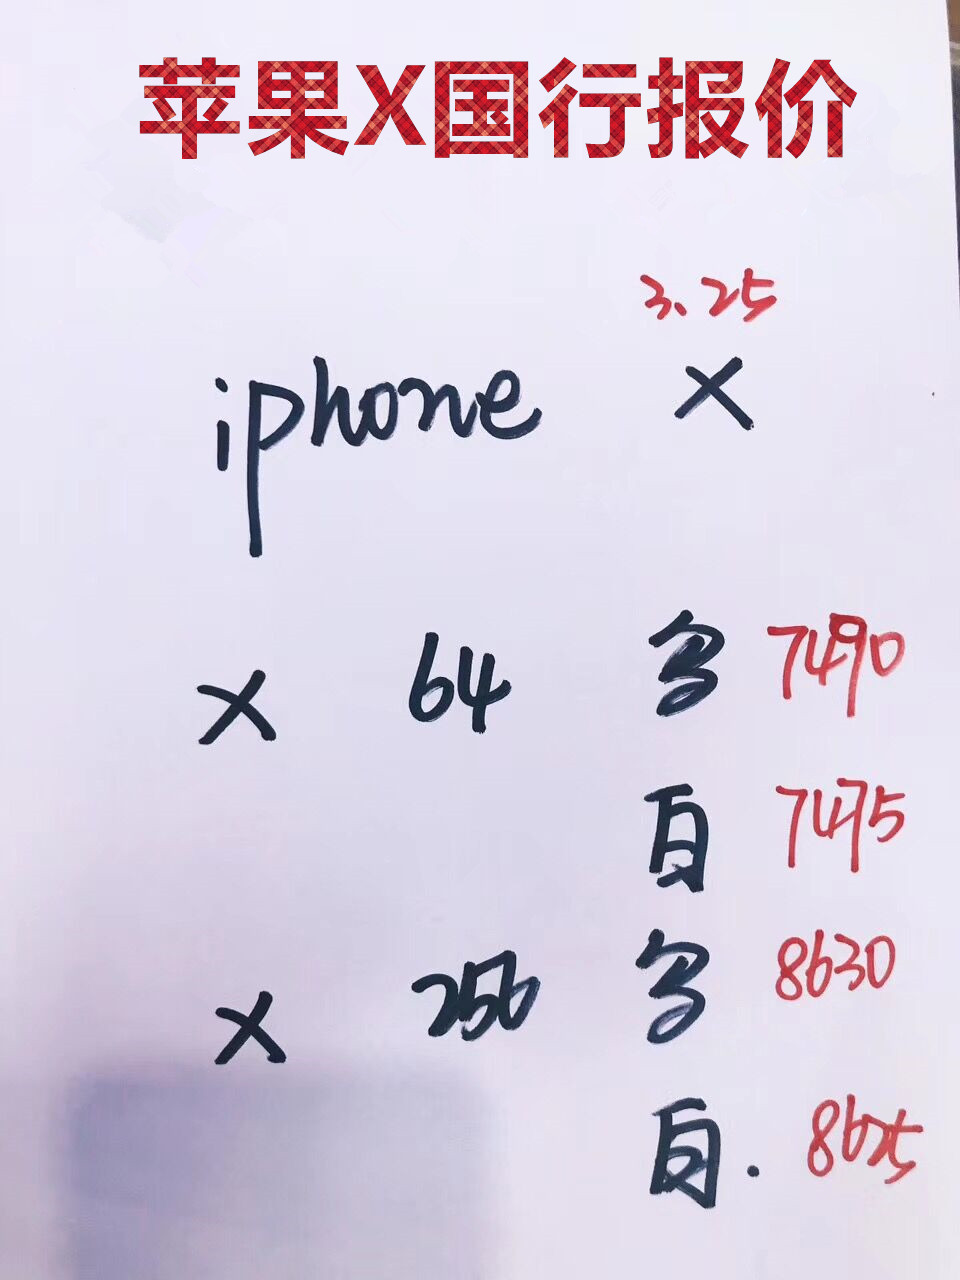 苹果X国行报价
3.25
iphone X
X 64 多 7490
白 7475
X 256 多 8630
白. 8625